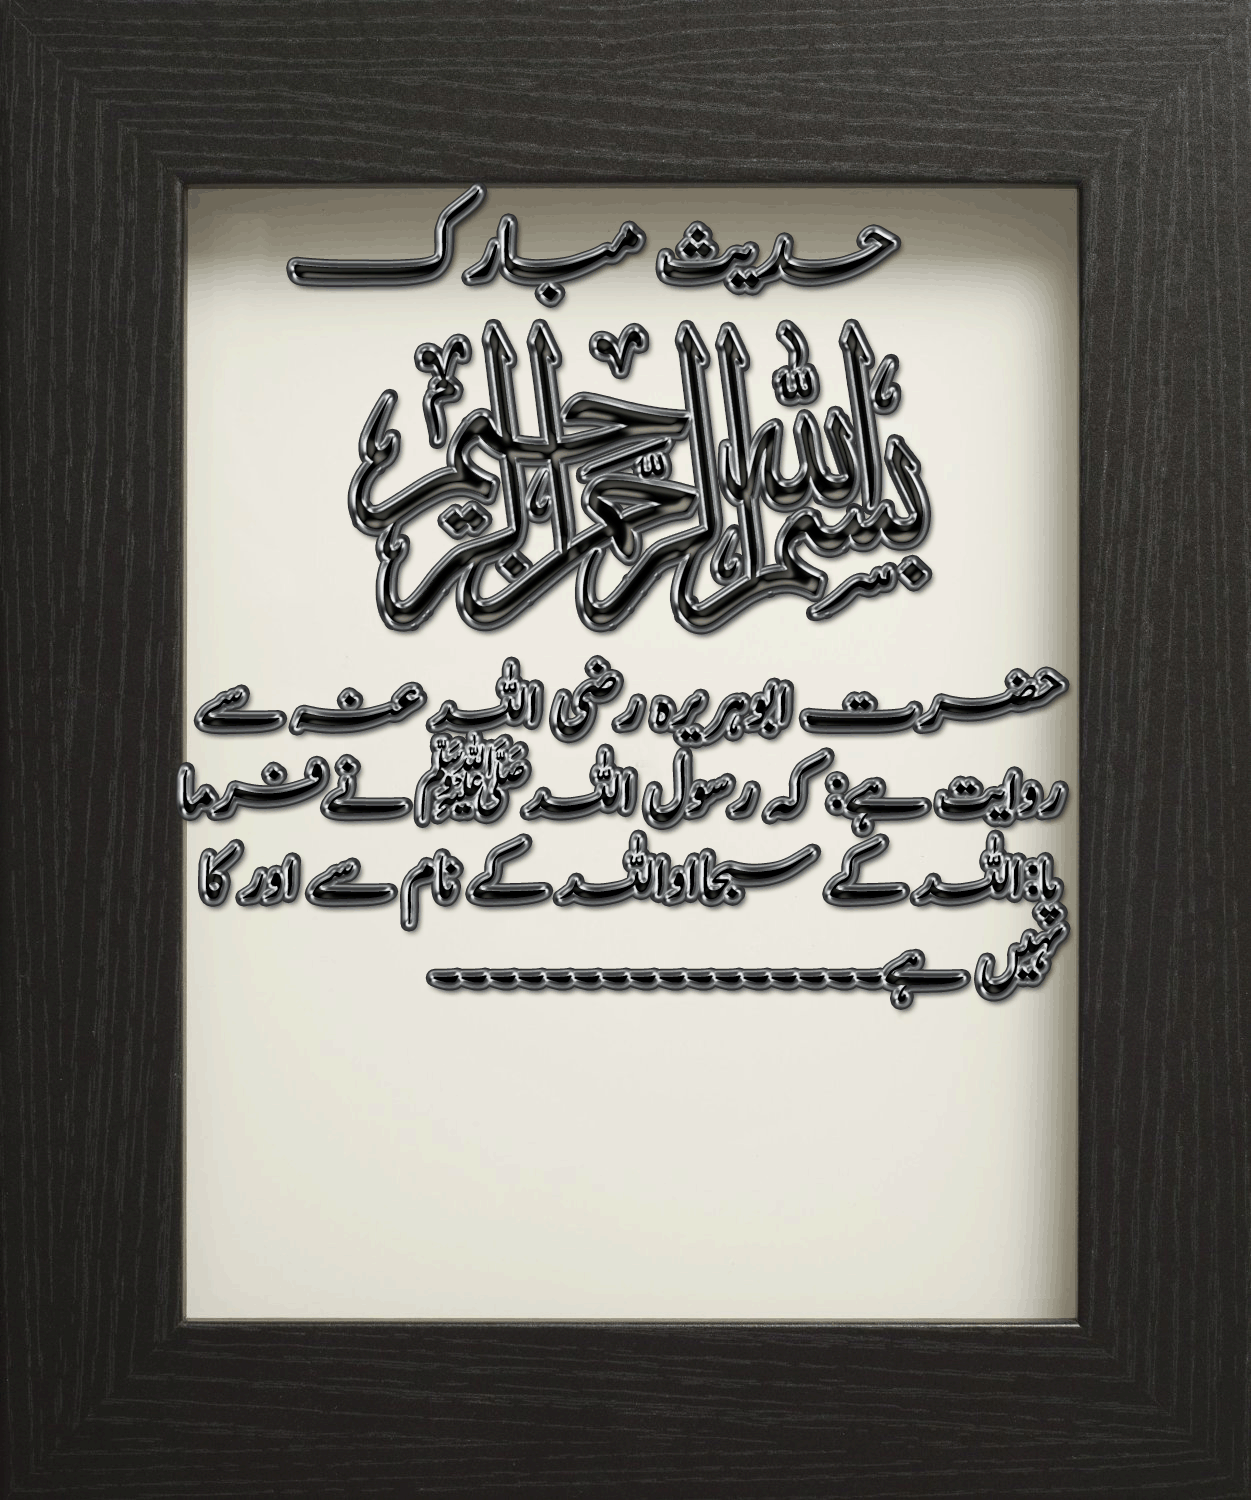 حدیث مبارک
بسم الله الرحمن الرحیم
حضرت ابوہریرہ رضی اللہ عنہ سے
روایت ہے: کہ رسول اللہ ﷺ نے فرما
یا:اللہ کے سبحااواللہ کے نام سے اور کا
نہیں ہے۔۔۔۔۔۔۔۔۔۔۔۔۔۔۔۔